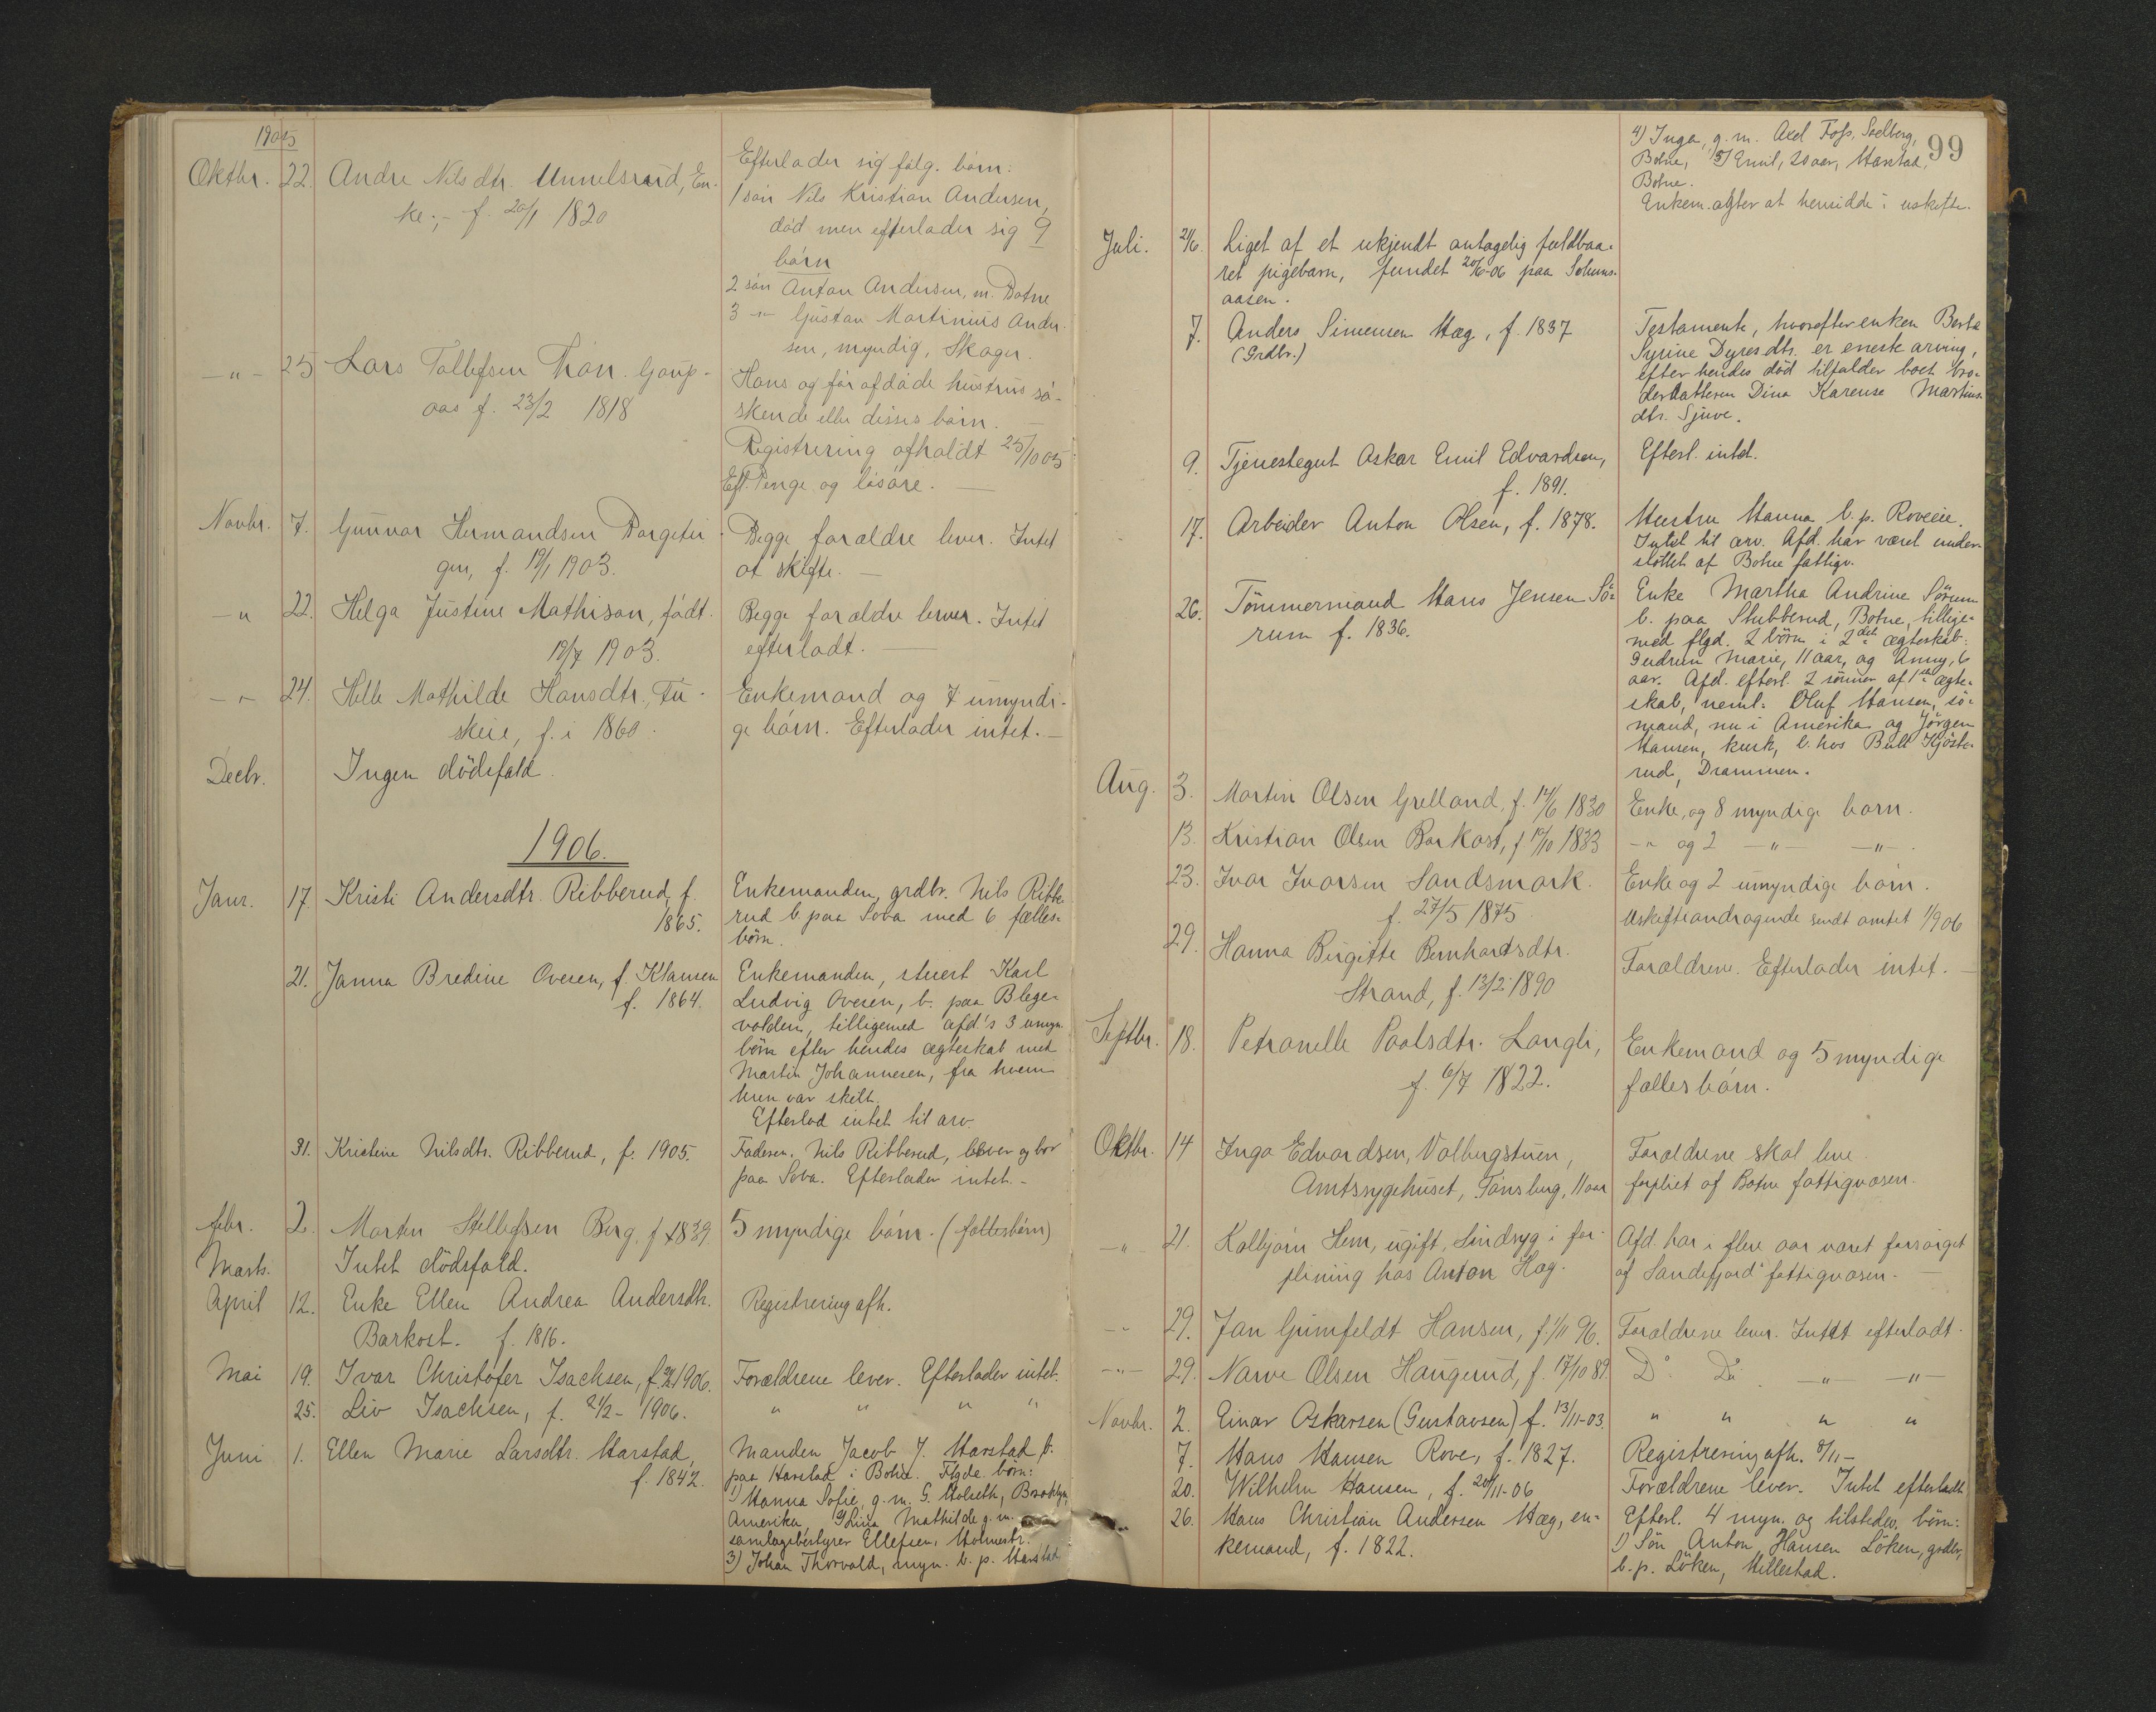 1905
Oktbr. 22. Andre Nilsdtr. Unnelsrud, En-
ke;- f. 20/1 1820
Efterlader sig fölg. börn:
1 sön Nils Kristian Andersen,
död men efterlader sig 9
börn
2 sön Anton Andersen, m. Botne
3 -"- Gustav Martinius Ander-
sen, myndig, Skoger.
-"- 25 Lars Tollefsen Thon. Gaup-
aas f. 23/2 1818
Hans og før afdøde hustrus sö-
skende eller disses börn. -
Registrering afholdt 25/10 05
Eft. Penge og lösöre. -
Novbr. 7. Gunvar Hermandsen Borgetei-
gen, f. 19/1 1903.
Begge forældre lever. Intet
at skifte. -
-" 22. Helga Justine Mathison, född
19/7 1903.
Begge forældre lever. Intet
efterladt. -
-"- 24. Helle Mathilde Hansdtr., Fu-
skeie, f. i 1860.
Enkemand og 7 umyndi-
ge börn. Efterlader intet. -
Decbr. Ingen dödsfald.
1906.
Janr. 17. Kristi Andersdtr. Ribberud, f.
1865.
Enkemanden, grdbr. Nils Ribbe-
rud b. paa Sova med 6 fælles-
börn.
21. Janna Bredine Ovesen, f. Klausen
f. 1864.
Enkemanden, stuert Karl
Ludvig Ovesen, b. paa Blege-
volden, tilligemed afd's 3 umyn.
börn efter hendes ægteskab med
Martin Johannesen, fra hvem
hun var skilt.
Efterlod intet til arv.
31. Kristine Nilsdtr. Ribberud, f. 1905.
Faderen, Nils Ribberud, lever og bor
paa Sova. Efterlader intet. -
Febr. 2. Morten Stillefsen Berg, f 1839.
5 myndige börn. (fællesbörn)
Marts. Intet dödsfald.
April 12. Enke Ellen Andrea Andersdtr.
Barkost. f. 1816.
Registrering afh.
Mai 19. Ivar Christofer Isachsen, f. 21/2 1906.
Forældrene lever. Efterlader intet.
25. Liv Isachsen, f. 21/2 - 1906.
" " " "
Juni 1. Ellen Marie Larsdtr. Harstad,
f. 1842.
Manden Jacob J. Harstad b.
paa Harstad i Botne. Flgde. börn:
1) Hanna Sofie, g. m. G. Holseth, Brooklyn,
Amerika 2) Lina Mathilde g. m.
samlagsbestyrer Ellefsen, Holmestr.
3) Johan Thorvald, myn. b. p. Harstad
99
4) Inga, g. m. Axel Foss, Solberg,
Botne, 5) Emil, 20 aar, Harstad,
Botne.
Enkem. agter at hensidde i uskifte.
Juli. 21/6. Liget af et ukjendt antagelig fuldbaa-
ret pigebarn, fundet 20/6-06 paa Solums-
aasen.
7. Anders Simensen Hæg, f. 1837
(Grdbr.)
Testamente, hvorefter enken Berte
Syrine Dyresdtr. er eneste arving,
efter hendes död tilfalder boet bro-
derdatteren Dina Karense Martins-
dtr. Sjuve.
9. Tjenestegut Oskar Emil Edvardsen,
f. 1891.
Efterl. intet.
17. Arbeider Anton Olsen, f. 1878.
Hustru Hanna b. p. Roveeie.
Intet til arv. Afd. har været under-
stöttet af Botne fattigv.
26. Tömmermand Hans Jensen Sö-
rum f. 1836.
Enke Martha Andrine Sörum
b. paa Stubberud, Botne, tillige-
med flgd. 2 börn i 2det ægteskab:
Gudrun Marie, 11 aar, og Anny, 6
aar. Afd. efterl. 2 sönner af 1ste ægte-
skab, neml. Oluf Hansen, sö-
mand, nu i Amerika og Jörgen
Hansen, kusk, b. hos Bull Kjöste-
rud, Drammen.
Aug. 3. Martin Olsen Grelland, f. 14/6 1830
Enke, og 8 myndige börn.
13. Kristian Olsen Barkost, f 19/10 1833
-"- og 2 -"- -"-.
23. Ivar Ivarsen Sandsmark.
f. 27/5 1875
Enke og 2 umyndige börn.
Uskifteandragende sendt amtet 1/9 06
29. Hanna Birgitte Bernhardsdtr.
Strand, f. 13/2 1890
Forældrene. Efterlader intet. -
Septbr. 18. Petronelle Paalsdtr. Langli,
f. 6/7 1822.
Enkemand og 5 myndige
fællesbörn.
Oktbr. 14 Inga Edvardsen, Valbugstuen,
Amtssygehuset, Tönsberg, 11 aar
Forældrene skal leve.
forpliet af Botne fattigvæsen.
-"- 21. Kolbjörn Hem, ugift, Sindsyg i for-
pleining hos Anton Hæg.
Afd. har i flere aar været forsörget
af Sandefjord fattigvæsen. -
-"- 29. Jan Grimfeldt Hansen, f. 1/11 96.
Forældrene lever. Intet efterladt.
-"- 29. Narve Olsen Haugerud, f. 17/10 89.
Do Do -"- -"-
Novbr. 2. Einar Oskarsen (Gustavsen) f. 13/11-03.
" " " "
7. Hans Hansen Rove, f. 1827.
Registrering afh. 8/11-
20. Wilhelm Hansen, f. 20/11-06
Forældrene lever. Intet efterladt
26. Hans Christian Andersen Hæg, en-
kemand, f. 1822.
Efterl. 4 myn. og tilstedev. börn:
1) Sön Anton Hansen Löken, grdbr,
b. p. Löken, Hillestad.